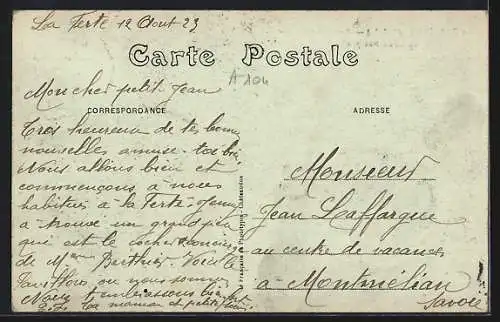 La Ferté 12 Aout 23
Carte Postale
A 104
Mon cher petit Jean
CORRESPONDANCE
ADRESSE
Très heureux de tes bonnes
nouvelles amuse-toi bien
Nous allons bien et
commençons à nous
habituer à la Ferté
a trouvé un grand
qui est le cocher concierge
de Mme Berthier. Voici le
où nous sommes
t'embrassons bien
ta maman et petit
Monsieur
Jean Laffargue
au centre de vacances
à Montmélian
Savoie